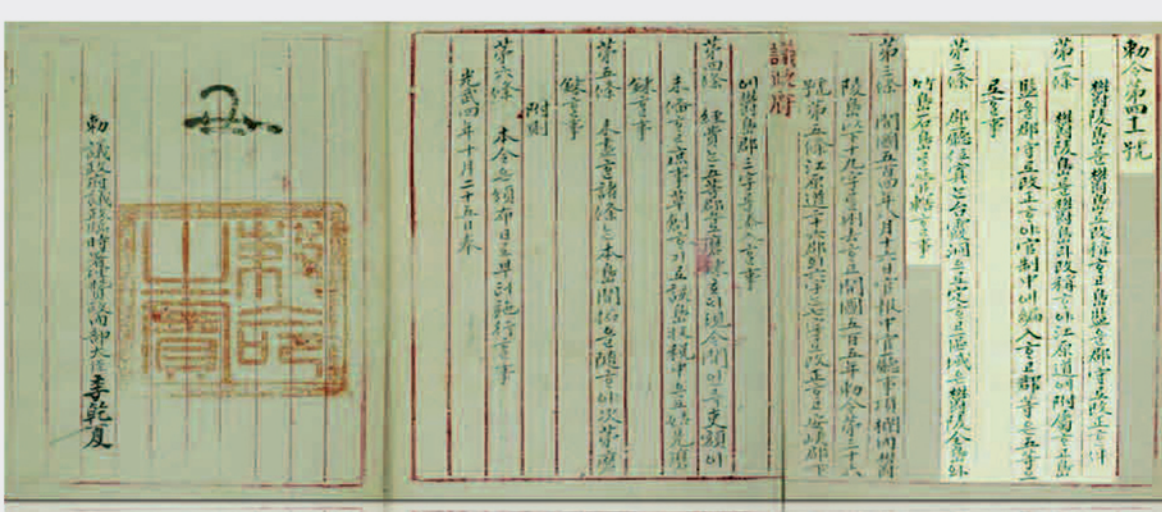 勅令第四十一號
鬱陵島를 鬱島로 改稱ᄒᆞ고 島監을 郡守로 改正ᄒᆞᆫ 件
第一條 鬱陵島를 鬱島라 改稱ᄒᆞ야 江原道에 附屬ᄒᆞ고 島
監을 郡守로 改正ᄒᆞ야 官制中에 編入ᄒᆞ고 郡等은 五等으
로 ᄒᆞᆯ 事
第二條 郡廳位寘ᄂᆞᆫ 台霞洞으로 定ᄒᆞ고 區域은 鬱陵全島와
竹島石島를 管轄ᄒᆞᆯ 事
第三條 開國五百四年八月十六日官報中官廳事項欄內鬱
陵島以下十九字를 刪去ᄒᆞ고 開國五百五年勅令第三十六
號第五條江原道二十六郡의 六字ᄂᆞᆫ 七字로 改正ᄒᆞ고 安峽郡下
議政府
에 鬱島郡三字를 添入ᄒᆞᆯ 事
第四條 經費ᄂᆞᆫ 五等郡으로 磨鍊ᄒᆞ되 現今間인즉 吏額이
未備ᄒᆞ고 庶事草創ᄒᆞ기로 該島收稅中으로 姑先磨
鍊ᄒᆞᆯ 事
第五條 未盡ᄒᆞᆫ 諸條ᄂᆞᆫ 本島開拓을 隨ᄒᆞ야 次第磨
鍊ᄒᆞᆯ 事
附則
第六條 本令은 頒布日로부터 施行ᄒᆞᆯ 事
光武四年十月二十五日奉
勅命之寶
勅 議政府議政臨時署理贊政內部大臣 李乾夏